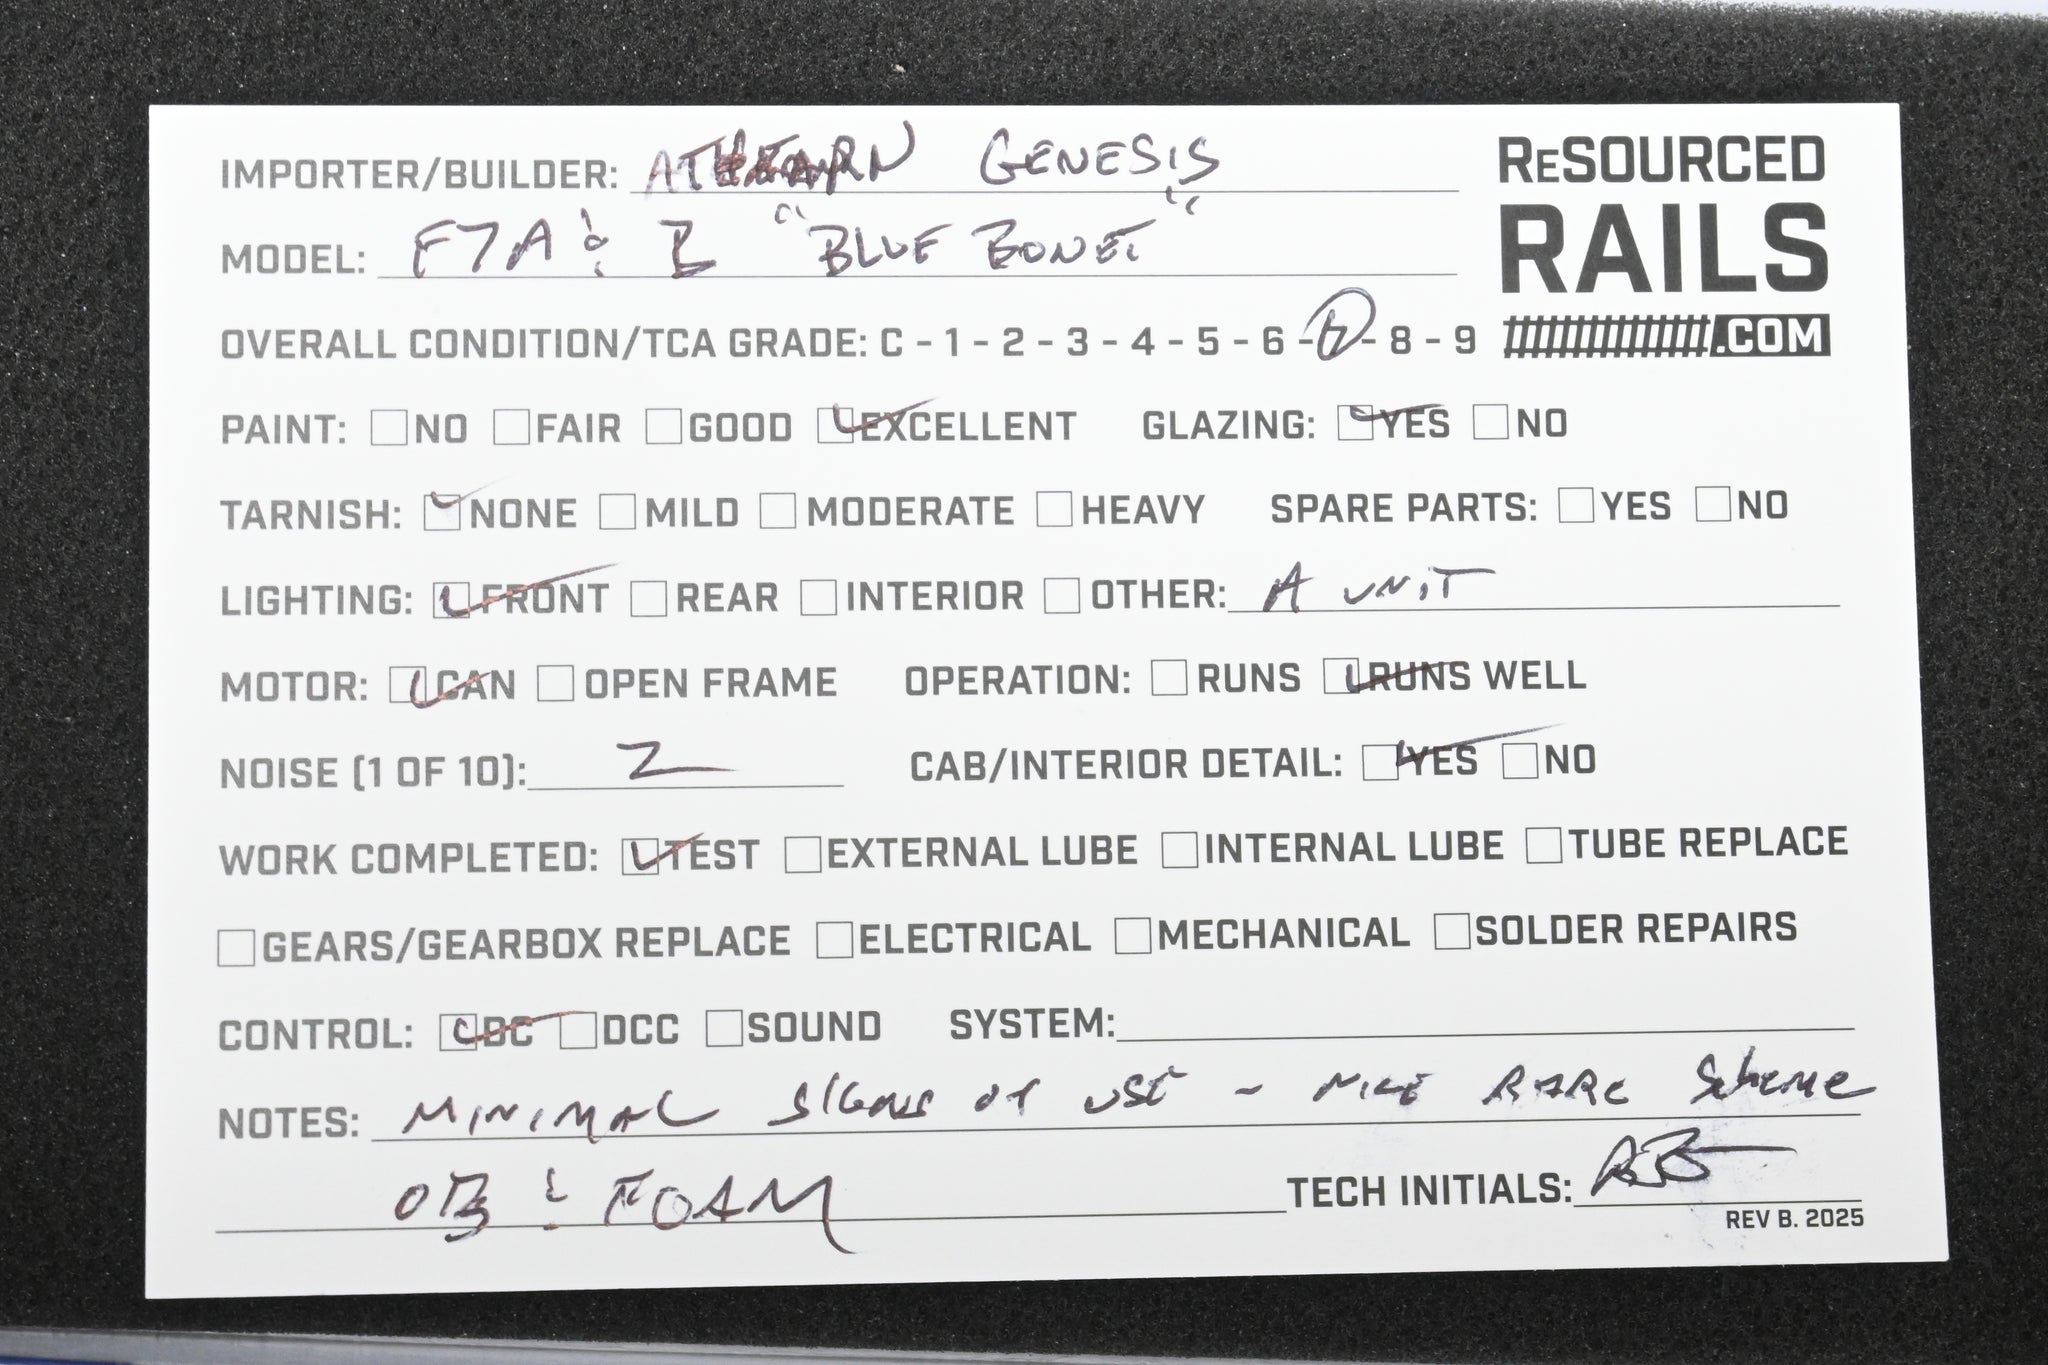 IMPORTER/BUILDER: ATHEARN GENESIS
RESOURCED
RAILS
.COM
MODEL: F7A & B "BLUE BONET"
OVERALL CONDITION/TCA GRADE: C - 1 - 2 - 3 - 4 - 5 - 6 - 7 - 8 - 9
PAINT: NO FAIR GOOD EXCELLENT GLAZING: YES NO
TARNISH: NONE MILD MODERATE HEAVY SPARE PARTS: YES NO
LIGHTING: FRONT REAR INTERIOR OTHER: A UNIT
MOTOR: CAN OPEN FRAME OPERATION: RUNS RUNS WELL
NOISE (1 OF 10): 2 CAB/INTERIOR DETAIL: YES NO
WORK COMPLETED: TEST EXTERNAL LUBE INTERNAL LUBE TUBE REPLACE
GEARS/GEARBOX REPLACE ELECTRICAL MECHANICAL SOLDER REPAIRS
CONTROL: DC DCC SOUND SYSTEM:
NOTES: MINIMAL SIGNS OF USE - NICE RARE Scheme
OB & FOAM TECH INITIALS: RB
REV B. 2025